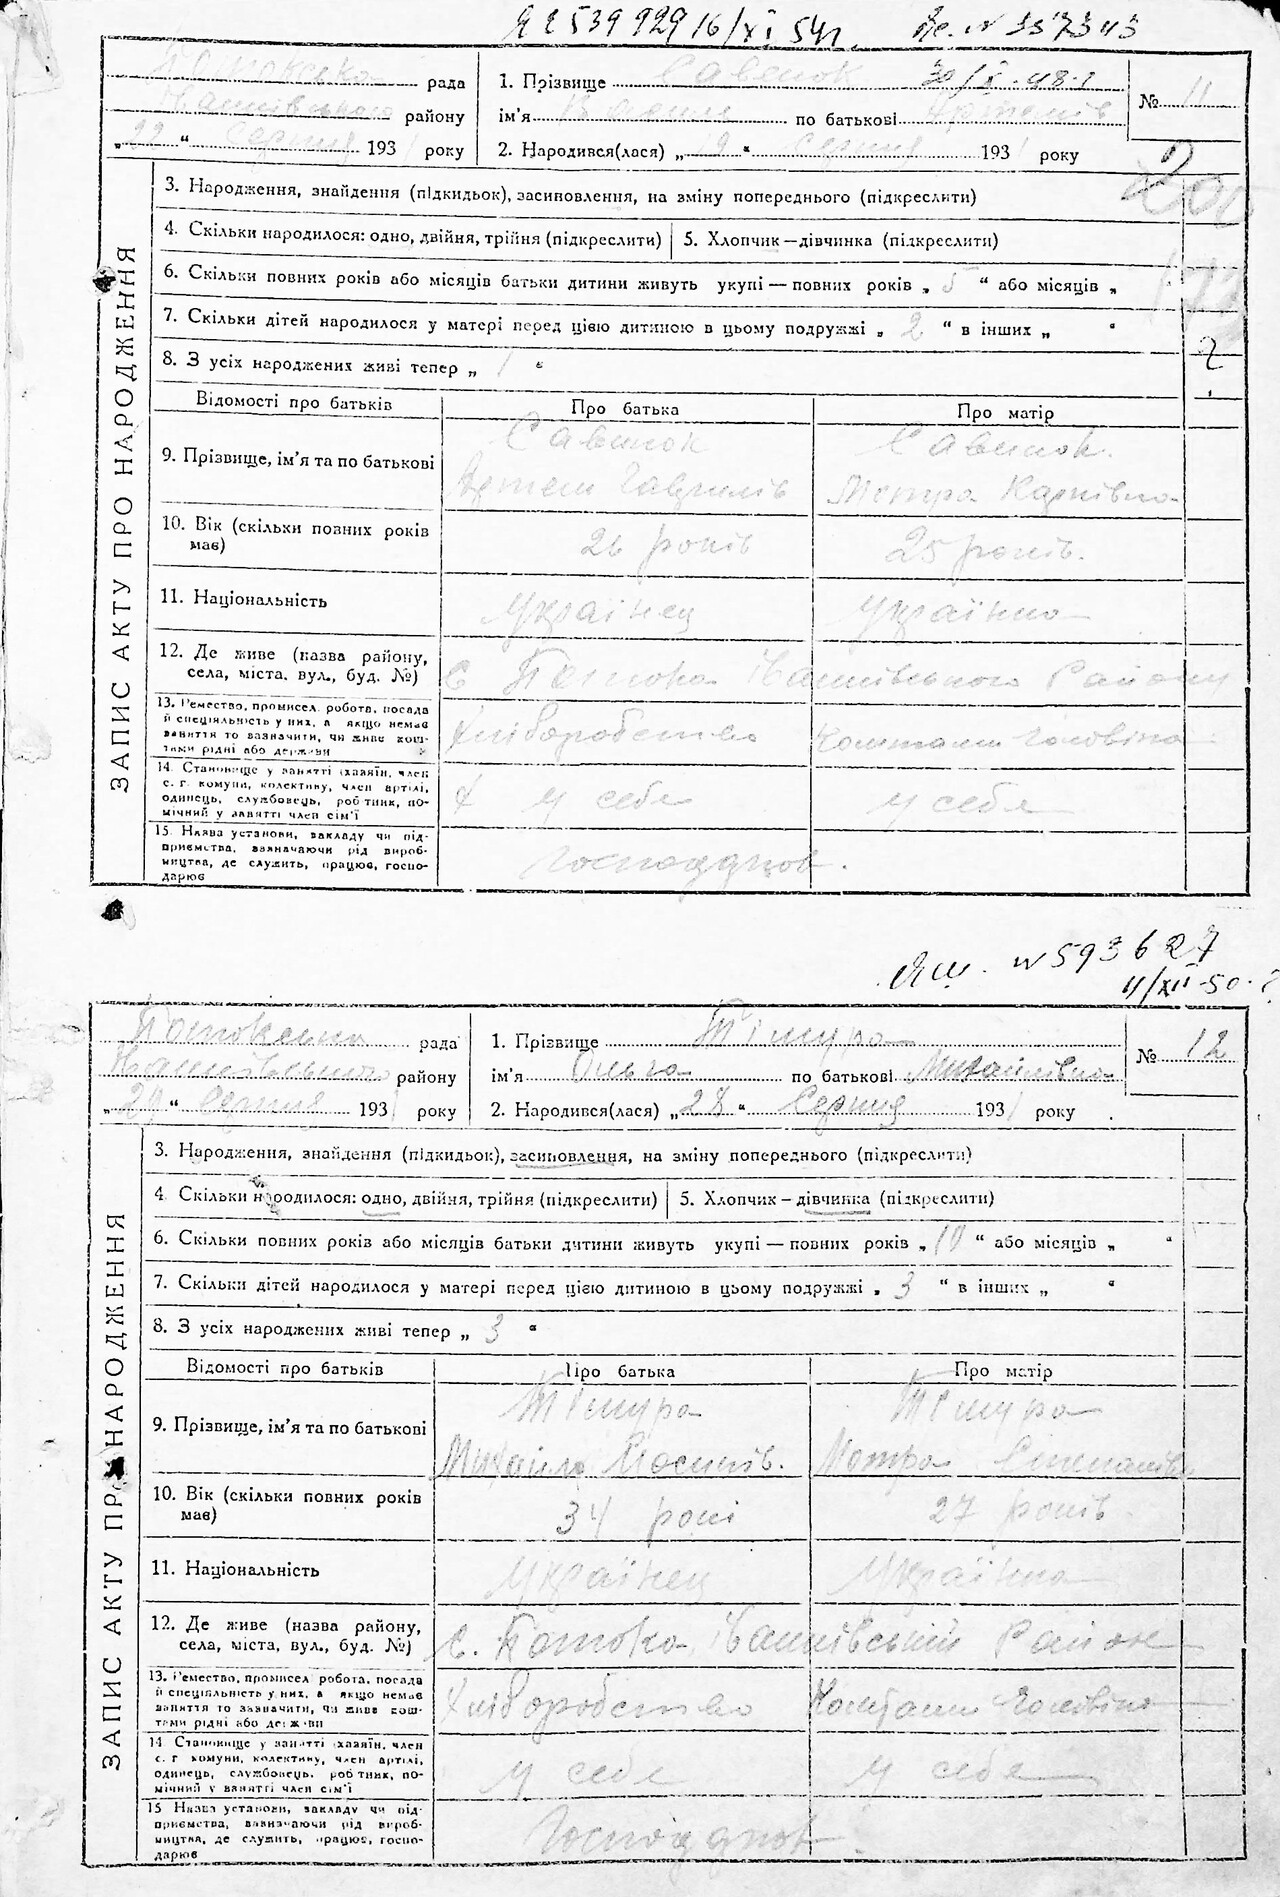 539 929 16/XI 54 р. № 357343
рада
району
"22" Серпня 1931 року
1. Прізвище Савенок 30/X-48 р
ім'я по батькові Артемів
2. Народився(лася) "19" Серпня 1931 року
№ 11
200
ЗАПИС АКТУ ПРО НАРОДЖЕННЯ
3. Народження, знайдення (підкидьок), засиновлення, на зміну попереднього (підкреслити)
4. Скільки народилося: одно, двійня, трійня (підкреслити)
5. Хлопчик—дівчинка (підкреслити)
6. Скільки повних років або місяців батьки дитини живуть укупі — повних років „ 5 “ або місяців „
7. Скільки дітей народилося у матері перед цією дитиною в цьому подружжі „ 2 “ в інших „ “
8. З усіх народжених живі тепер „ 1 “
2
Відомості про батьків Про батька Про матір
9. Прізвище, ім'я та по батькові
Савенок Савенок.
Артем Гаврилів Мотря Карпівна
10. Вік (скільки повних років має)
26 років 25 років.
11. Національність
Українец Українка
12. Де живе (назва району, села, міста, вул., буд. №)
с Потока Іваньківського Району
13. Ремество, промисел, робота, посада й спеціяльність у них, а якщо немає заняття то зазначити, чи живе коштами рідні або держави
Хліборобство Коштами Чоловіка
14. Становище у занятті (хазяїн, член с. г. комуни, колективу, член артілі, одинець, службовець, робітник, помічний у занятті член сім'ї
у себе у себе
15. Назва установи, закладу чи підприємства, зазначаючи рід виробництва, де служить, працює, господарює
№ 593627
11/XII-50
рада
району
"29" Серпня 1931 року
1. Прізвище Тімура
ім'я Ольга по батькові Михайлівна
2. Народився(лася) "28" Серпня 1931 року
№ 12
ЗАПИС АКТУ ПРО НАРОДЖЕННЯ
3. Народження, знайдення (підкидьок), засиновлення, на зміну попереднього (підкреслити)
4. Скільки народилося: одно, двійня, трійня (підкреслити)
5. Хлопчик—дівчинка (підкреслити)
6. Скільки повних років або місяців батьки дитини живуть укупі — повних років „ 10 “ або місяців „ “
7. Скільки дітей народилося у матері перед цією дитиною в цьому подружжі „ 3 “ в інших „ “
8. З усіх народжених живі тепер „ 3 “
Відомості про батьків Про батька Про матір
9. Прізвище, ім'я та по батькові
Тімура Тімура
Михайло Йосипів. Мотря Степанівна
10. Вік (скільки повних років має)
34 рокі 27 років
11. Національність
Українец Українка
12. Де живе (назва району, села, міста, вул., буд. №)
с. Потока Іваньківський Район
13. Ремество, промисел, робота, посада й спеціяльність у них, а якщо немає заняття то зазначити, чи живе коштами рідні або держави
Хліборобство Коштами Чоловіка
14. Становище у занятті (хазяїн, член с. г. комуни, колективу, член артілі, одинець, службовець, робітник, помічний у занятті член сім'ї
у себе у себе
15. Назва установи, закладу чи підприємства, зазначаючи рід виробництва, де служить, працює, господарює